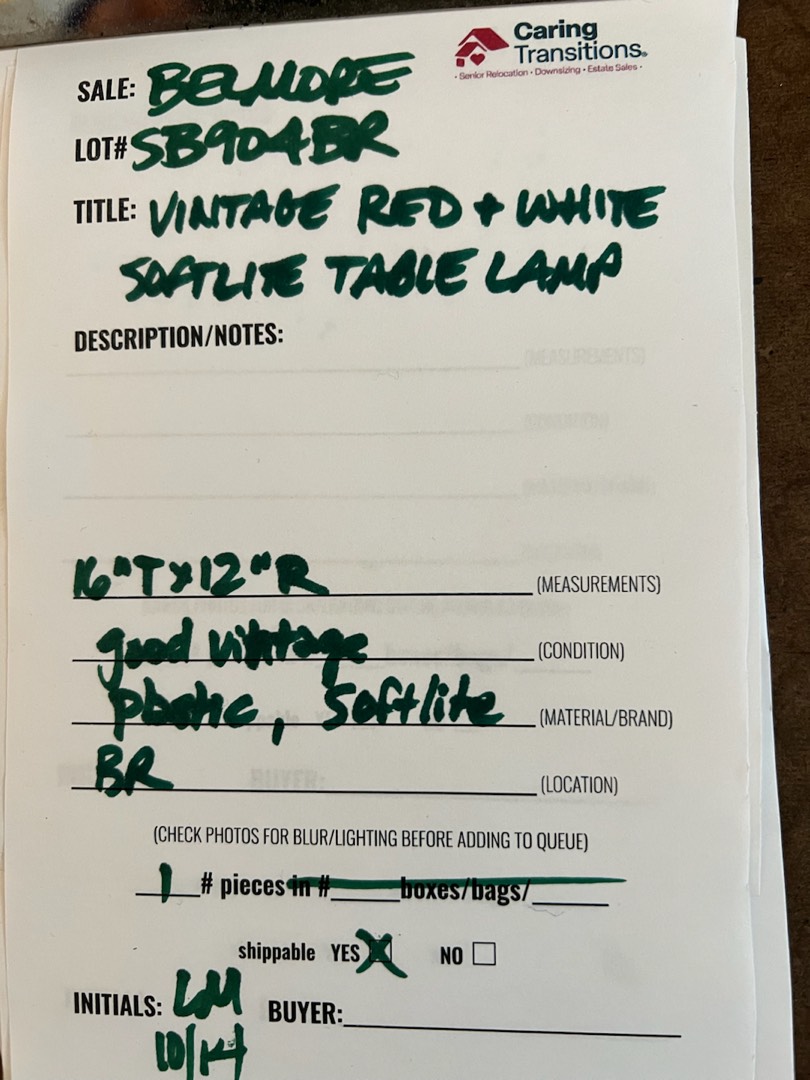 Caring
Transitions®
• Senior Relocation • Downsizing • Estate Sales •
SALE: BELMORE
LOT# SB904BR
TITLE: VINTAGE RED + WHITE
SOFTLITE TABLE LAMP
DESCRIPTION/NOTES:
16"T x 12"R (MEASUREMENTS)
good vintage (CONDITION)
plastic, Softlite (MATERIAL/BRAND)
BR (LOCATION)
(CHECK PHOTOS FOR BLUR/LIGHTING BEFORE ADDING TO QUEUE)
1 # pieces in #____boxes/bags/____
shippable YES X NO
INITIALS: LM BUYER:
10/14